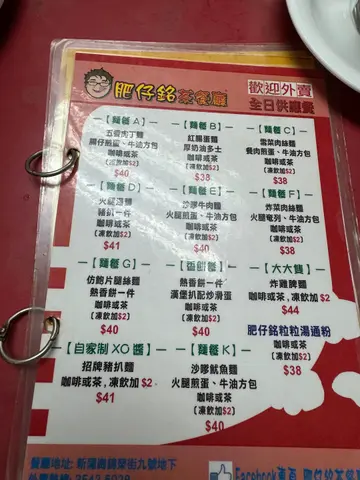 肥仔銘茶餐廳
歡迎外賣
全日供應餐
【麵餐 A】
五香肉丁麵
腸仔煎蛋、牛油方包
咖啡或茶
[凍飲加$2]
$40
【麵餐 B】
紅腸蛋麵
厚奶油多士
咖啡或茶
[凍飲加$2]
$38
【麵餐 C】
雪菜肉絲麵
餐肉煎蛋、牛油方包
咖啡或茶
[凍飲加$2]
$38
【麵餐 D】
火腿通麵
豬扒一件
咖啡或茶
[凍飲加$2]
$41
【麵餐 E】
沙嗲牛肉麵
火腿煎蛋、牛油方包
咖啡或茶
[凍飲加$2]
$38
【麵餐 F】
炸菜肉絲麵
火腿奄列、牛油方包
咖啡或茶
[凍飲加$2]
$38
【麵餐 G】
仿鮑片腿絲麵
熱香餅一件
咖啡或茶
[凍飲加$2]
$40
【香餅餐】
熱香餅一件
漢堡扒配炒滑蛋
咖啡或茶
[凍飲加$2]
$40
【大大髀】
炸雞髀麵
咖啡或茶
[凍飲加$2]
$44
肥仔銘粒粒湯通粉
咖啡或茶
[凍飲加$2]
$38
【自家制 XO 醬】
招牌豬扒麵
咖啡或茶,凍飲加$2
$41
【麵餐 K】
沙嗲魷魚麵
火腿煎蛋、牛油方包
咖啡或茶
[凍飲加$2]
$40
餐廳地址: 新蒲崗錦榮街九號地下
Facebook專頁
肥仔銘茶餐